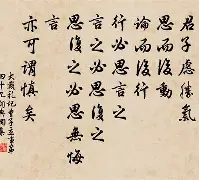 君子慮勝氣
思而後動
論而後行
行必思言之
言之必思復之
思復之必思無悔
言
亦可謂慎矣
大戴禮記曾子立事第
四十九